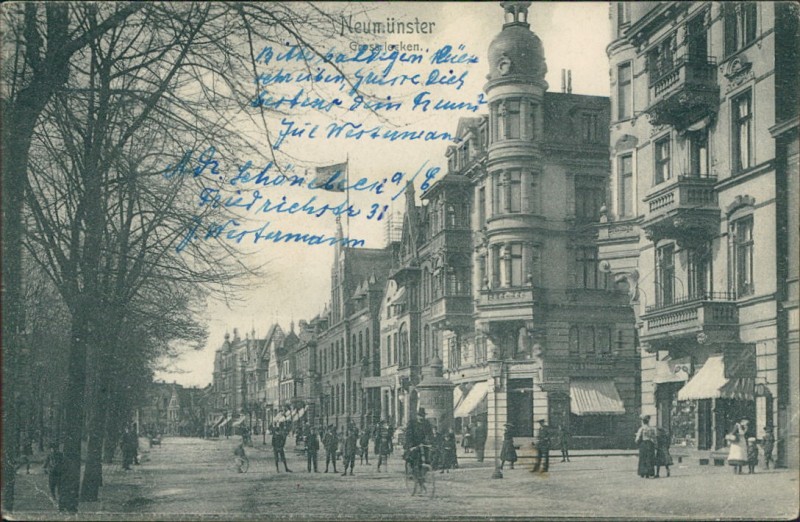 Neumünster
Grossflecken.
Bitte baldigen Rück
schreiben, Grüsse Dich
bestens dein Freund
Jul Westermann
Adr. Schönebeck a/E
Friedrichstr 31
J. Westermann